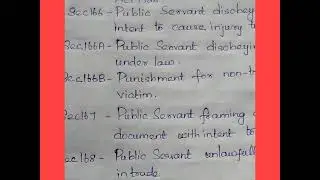 Sec166 - Public Servant disobey
intent to cause injury
Sec166A - Public Servant disobeyin
under law.
Sec166B - Punishment for non-t
victim.
Sec167 - Public Servant framing
document with intent to
Sec168 - Public Servant unlawfull
in trade